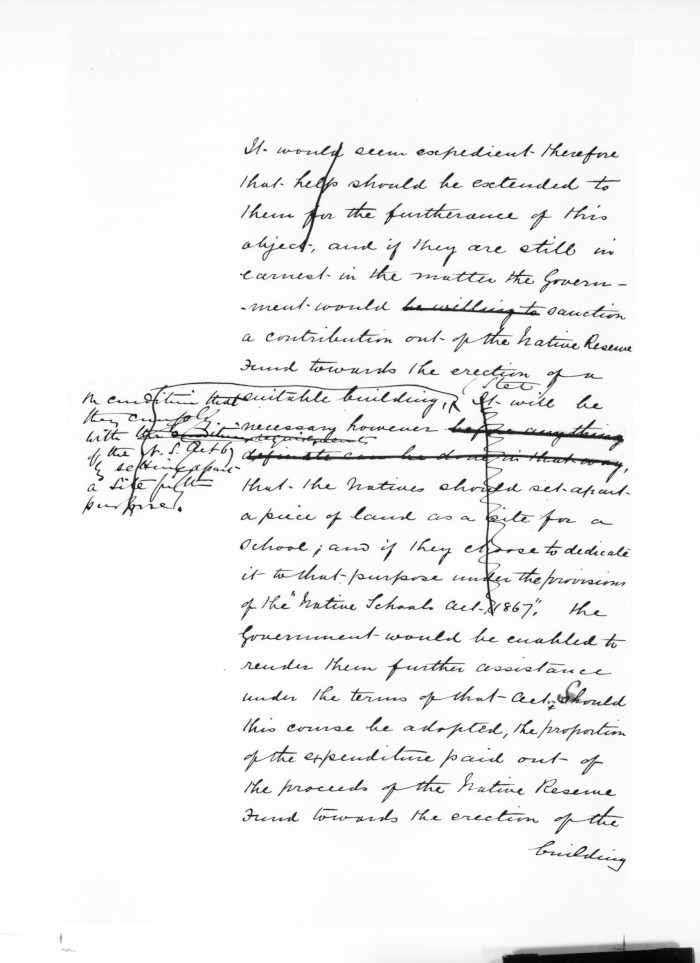 It would seem expedient therefore
that help should be extended to
them for the furtherance of this
object, and if they are still in
earnest in the matter the Govern-
-ment would be willing to sanction
a contribution out of the Native Reserve
Fund towards the erection of a
Stet
suitable building, It will be
necessary however before anything
definite can be done in that way,
that the Natives should set apart
a piece of land as a site for a
School; and if they choose to dedicate
it to that purpose under the provisions
of the "Native Schools Act, 1867", the
Government would be enabled to
render them further assistance
under the terms of that Act; Should
this course be adopted, the proportion
of the expenditure paid out of
the proceeds of the Native Reserve
Fund towards the erection of the
building
on condition that
they comply
with the requirements
of the N. S. Act 67
by setting apart
a site for the
purpose.